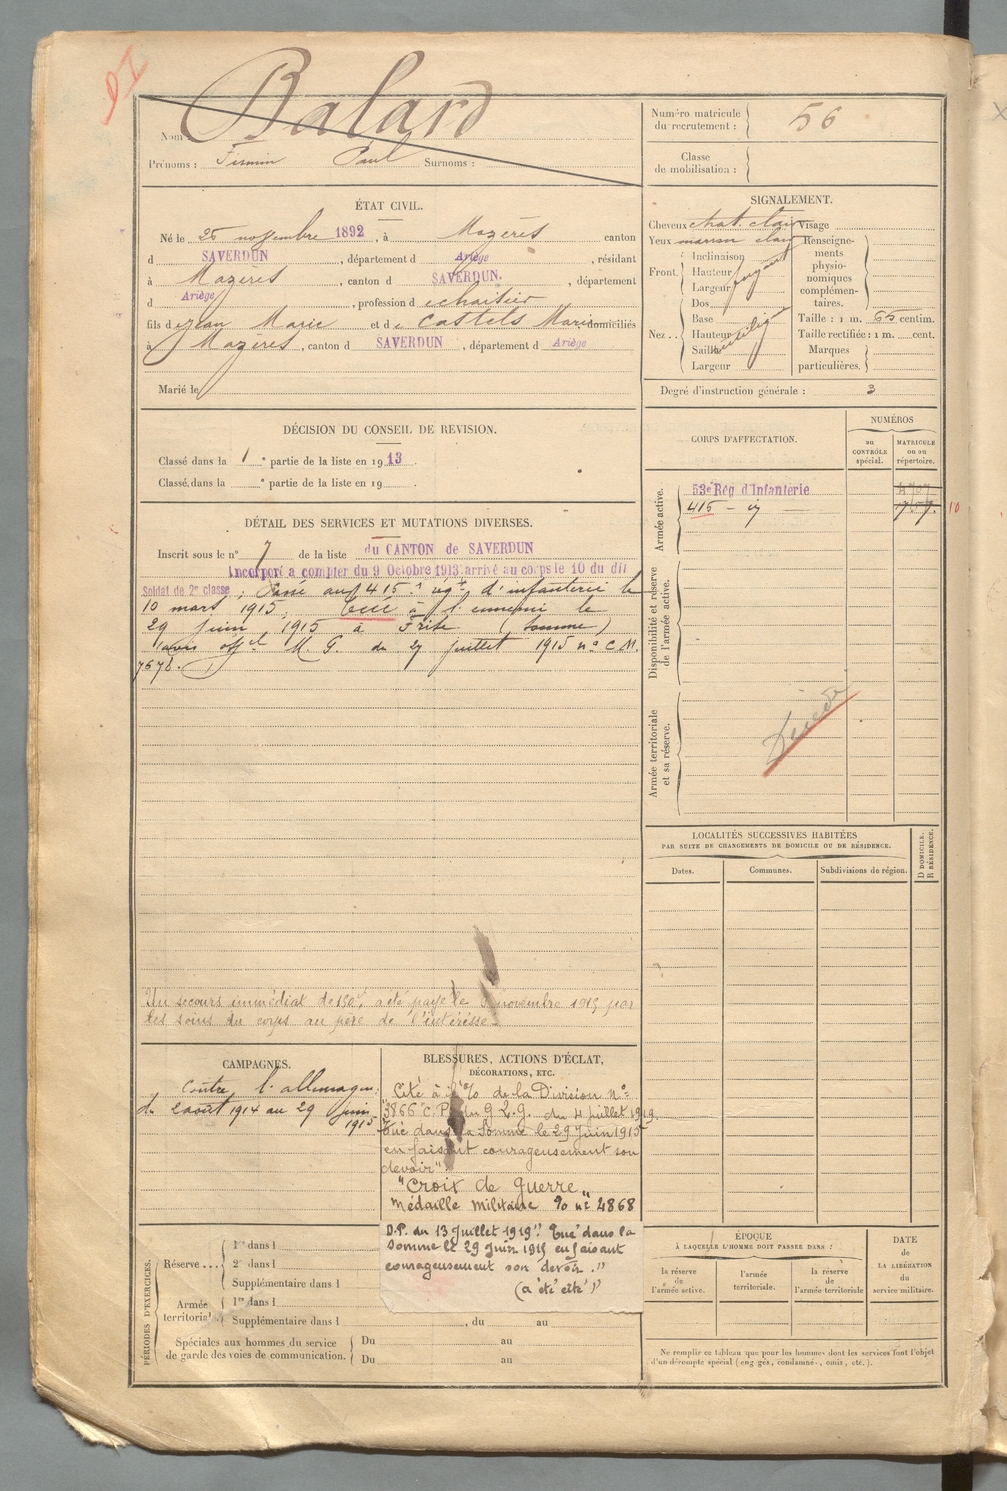 Balard
Nom :
Prénoms : Firmin Paul Surnoms :
Numéro matricule
du recrutement :
56
Classe
de mobilisation :
ÉTAT CIVIL.
Né le 25 novembre 1892, à Mazères canton
d SAVERDUN, département d Ariège, résidant
à Mazères, canton d SAVERDUN., département
d Ariège, profession d
fils de Jean Marie et de Castels Marie domiciliés
à Mazères, canton d SAVERDUN, département d Ariège
Marié le
SIGNALEMENT.
Cheveux chat. clair
Yeux marron clair
Front.
Inclinaison
Hauteur
Largeur
fuyant
Nez ..
Dos
Base
Hauteur
Saillie
Largeur
Visage
Renseigne-
ments
physio-
nomiques
complémen-
taires.
Taille : 1 m. 65 centim.
Taille rectifiée : 1 m. cent.
Marques
particulières.
Degré d'instruction générale : 3
DÉCISION DU CONSEIL DE REVISION.
Classé dans la 1 e partie de la liste en 1913.
Classé dans la e partie de la liste en 19
CORPS D'AFFECTATION.
NUMÉROS
au
CONTRÔLE
spécial.
MATRICULE
ou au
répertoire.
Armée active.
53e Rég d'Infanterie
415 -
10
Disponibilité et réserve
de l'armée active.
Armée territoriale
et sa réserve.
DÉTAIL DES SERVICES ET MUTATIONS DIVERSES.
Inscrit sous le n° 7 de la liste du CANTON de SAVERDUN
Incorporé à compter du 9 Octobre 1913 arrivé au corps le 10 du dit
Soldat de 2e classe ; Passé au 415e régt d'infanterie le
10 mars 1915, Tué à l'ennemi le
29 Juin 1915 à Frise (Somme)
avis offel M. G. du 27 juillet 1915 n° C M.
7678.
Un secours immédiat de 150f a été payé le novembre 1915 par
les soins du corps au père de l'intéressé.
LOCALITÉS SUCCESSIVES HABITÉES
PAR SUITE DE CHANGEMENTS DE DOMICILE OU DE RÉSIDENCE.
Dates.
Communes.
Subdivisions de région.
D DOMICILE.
R RÉSIDENCE.
CAMPAGNES.
Contre l'allemagne
du 2 août 1914 au 29 juin
1915
BLESSURES, ACTIONS D'ÉCLAT,
DÉCORATIONS, ETC.
Cité à l'% de la Division N°
3866 C.P. du G.Q.G. du 4 juillet 1919.
Tué dans la Somme le 29 Juin 1915
en faisant courageusement son
devoir"
"Croix de Guerre"
Médaille militaire % n° 4868
D.P. du 13 Juillet 1919 "Tué dans la
Somme le 29 Juin 1915 en faisant
courageusement son devoir."
(a été cité)
PÉRIODES D'EXERCICES.
Réserve
1re dans l
2e dans l
Supplémentaire dans l
Armée
territoriale
1re dans l
Supplémentaire dans l , du au
Spéciales aux hommes du service
de garde des voies de communication.
Du au
Du au
ÉPOQUE
À LAQUELLE L'HOMME DOIT PASSER DANS :
la réserve
de
l'armée active.
l'armée
territoriale.
la réserve
de
l'armée territoriale
DATE
de
LA LIBÉRATION
du
service militaire.
Ne remplir ce tableau que pour les hommes dont les services font l'objet
d'un décompte spécial (engagés, condamnés, omis, etc.).